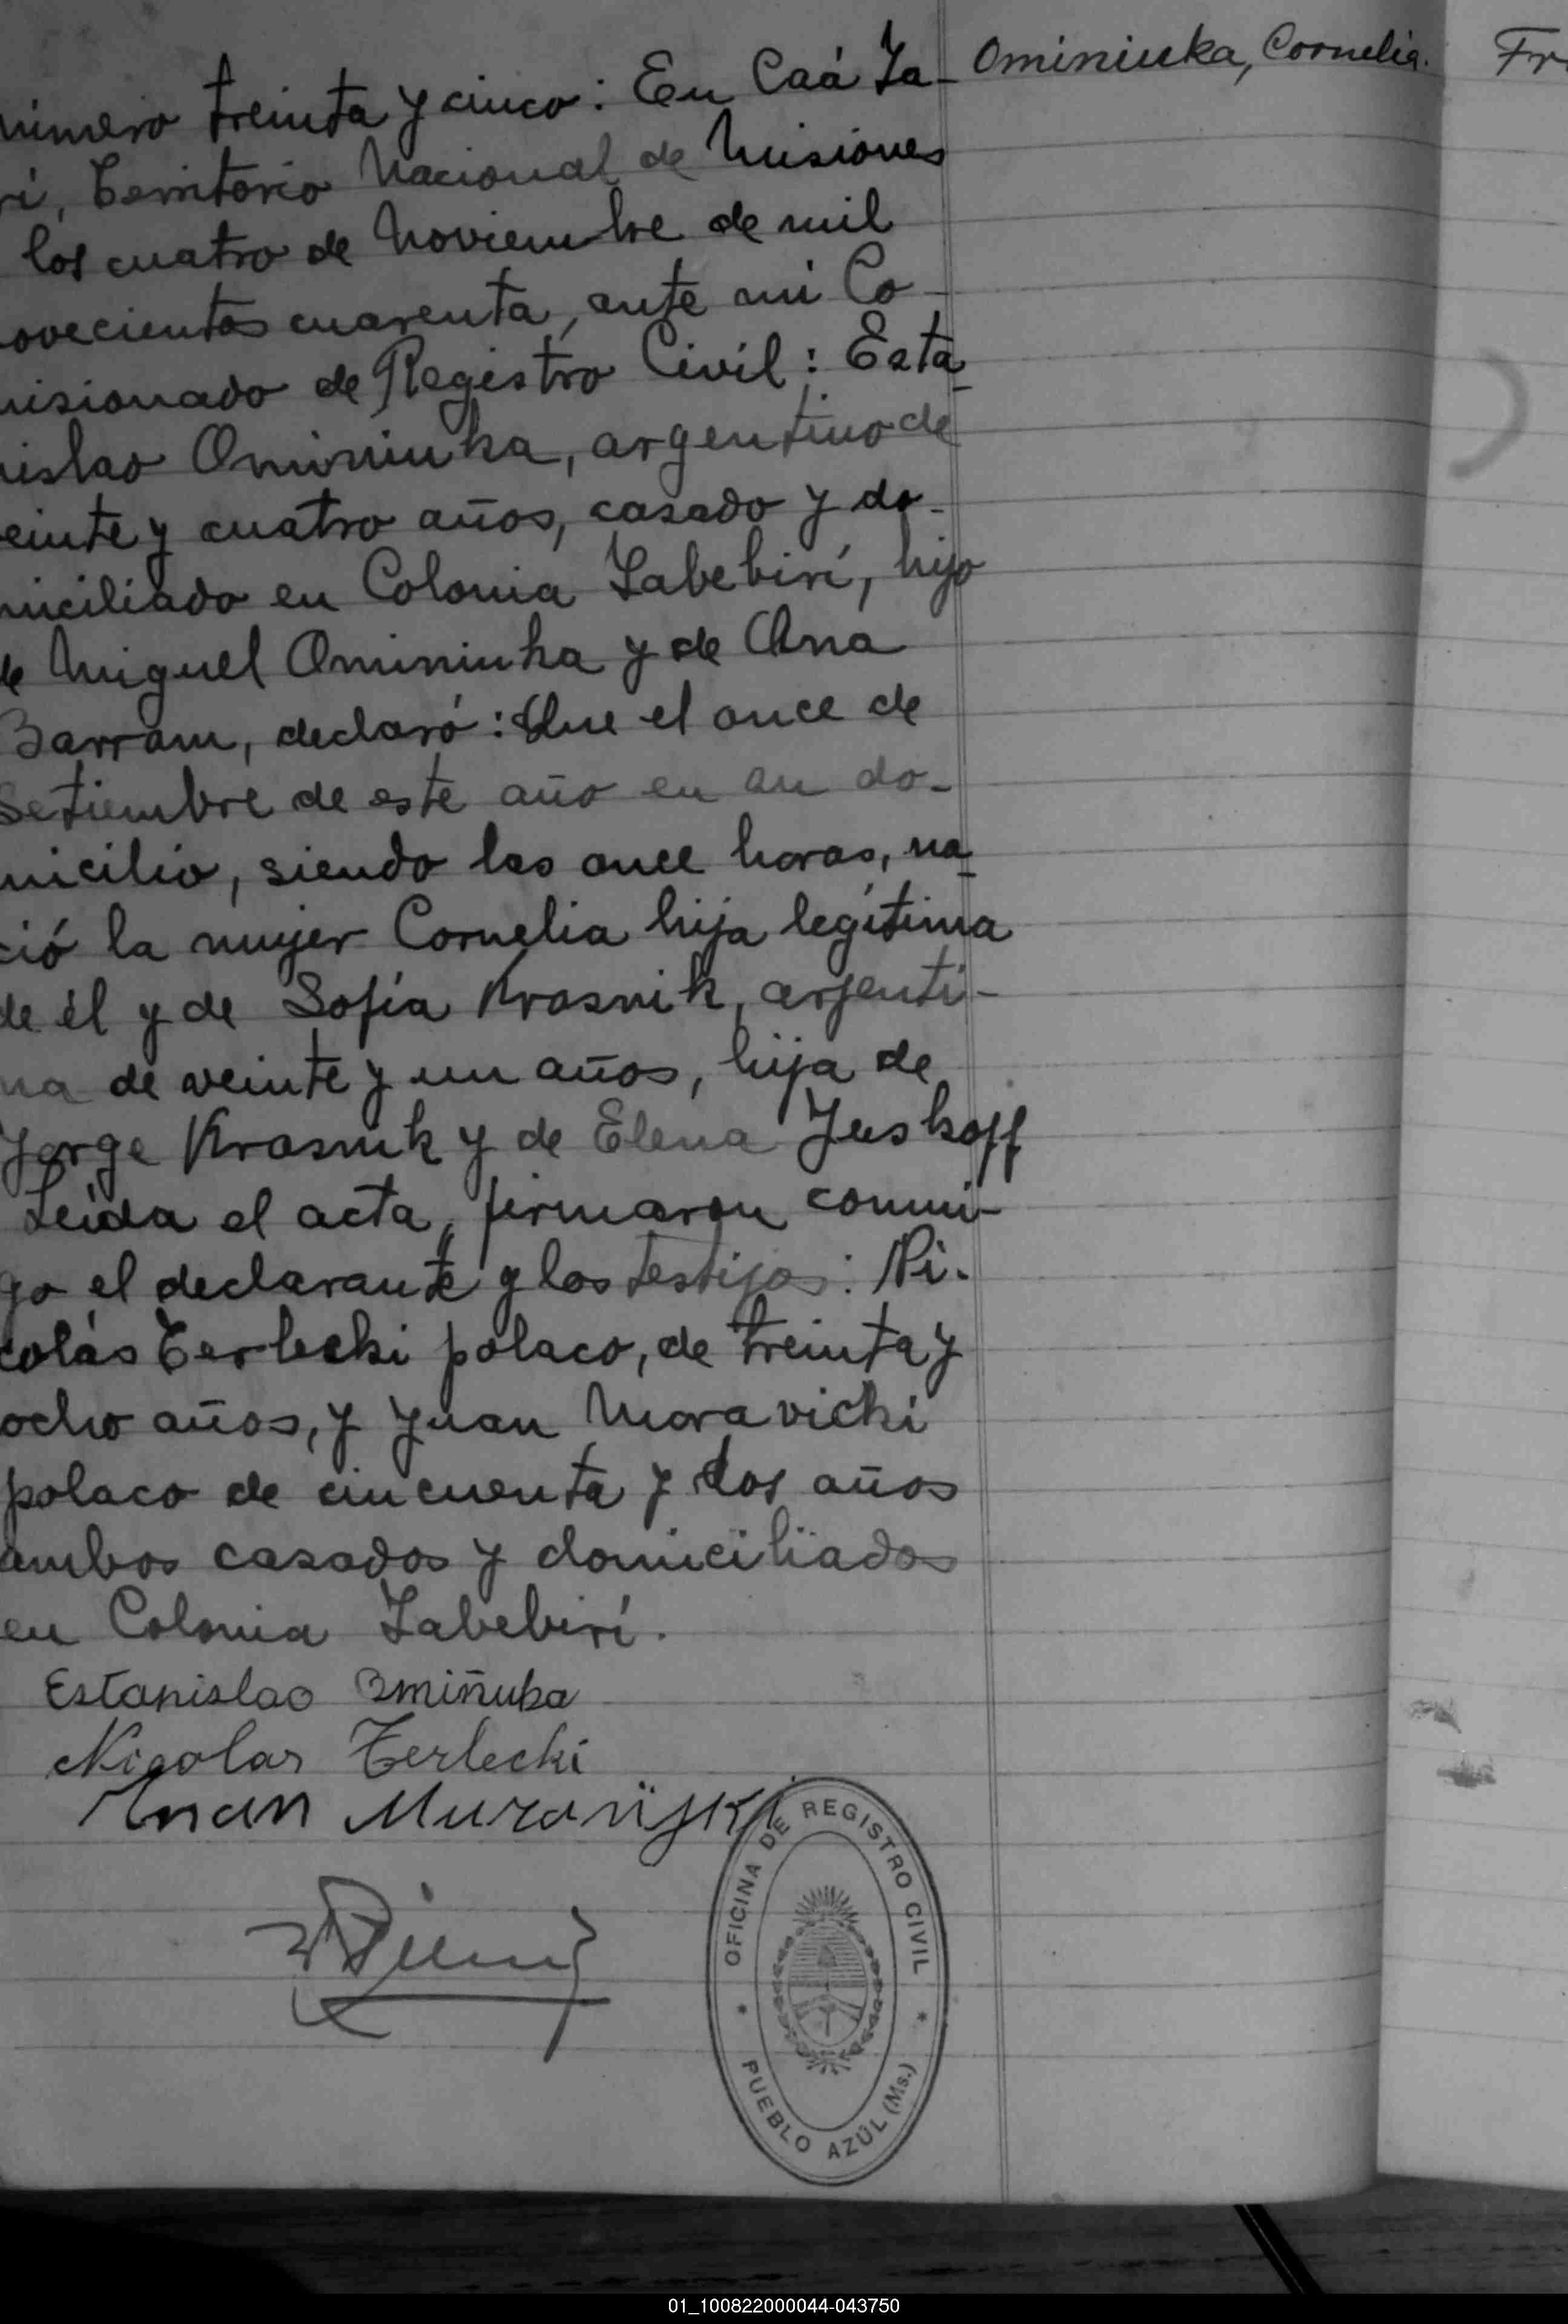 Ominiuka, Cornelia.
Fr
número treinta y cinco: En Caá Ya-
rí, Territorio Nacional de Misiones
los cuatro de Noviembre de mil
ovecientos cuarenta, ante mi Co-
misionado de Registro Civil: Esta-
nislao Ominiuka, argentino de
einte y cuatro años, casado y do-
miciliado en Colonia Yabebirí, hijo
de Miguel Ominiuka y de Ana
Barram, declaró: Que el once de
Setiembre de este año en su do-
micilio, siendo las once horas, na-
ció la mujer Cornelia hija legítima
de él y de Sofía Krasnik, argenti-
na de veinte y un años, hija de
Jorge Krasnik y de Elena Juskoff
Leída el acta, firmaron conmi-
go el declarante y los testigos: Ni-
colás Terlecki polaco, de treinta y
ocho años, y Juan Moravicki
polaco de cincuenta y dos años
ambos casados y domiciliados
en Colonia Yabebirí.
Estanislao Omiñuka
Nicolas Terlecki
Juan
OFICINA DE REGISTRO CIVIL
* *
PUEBLO AZÚL (Ms.)
01_100822000044-043750